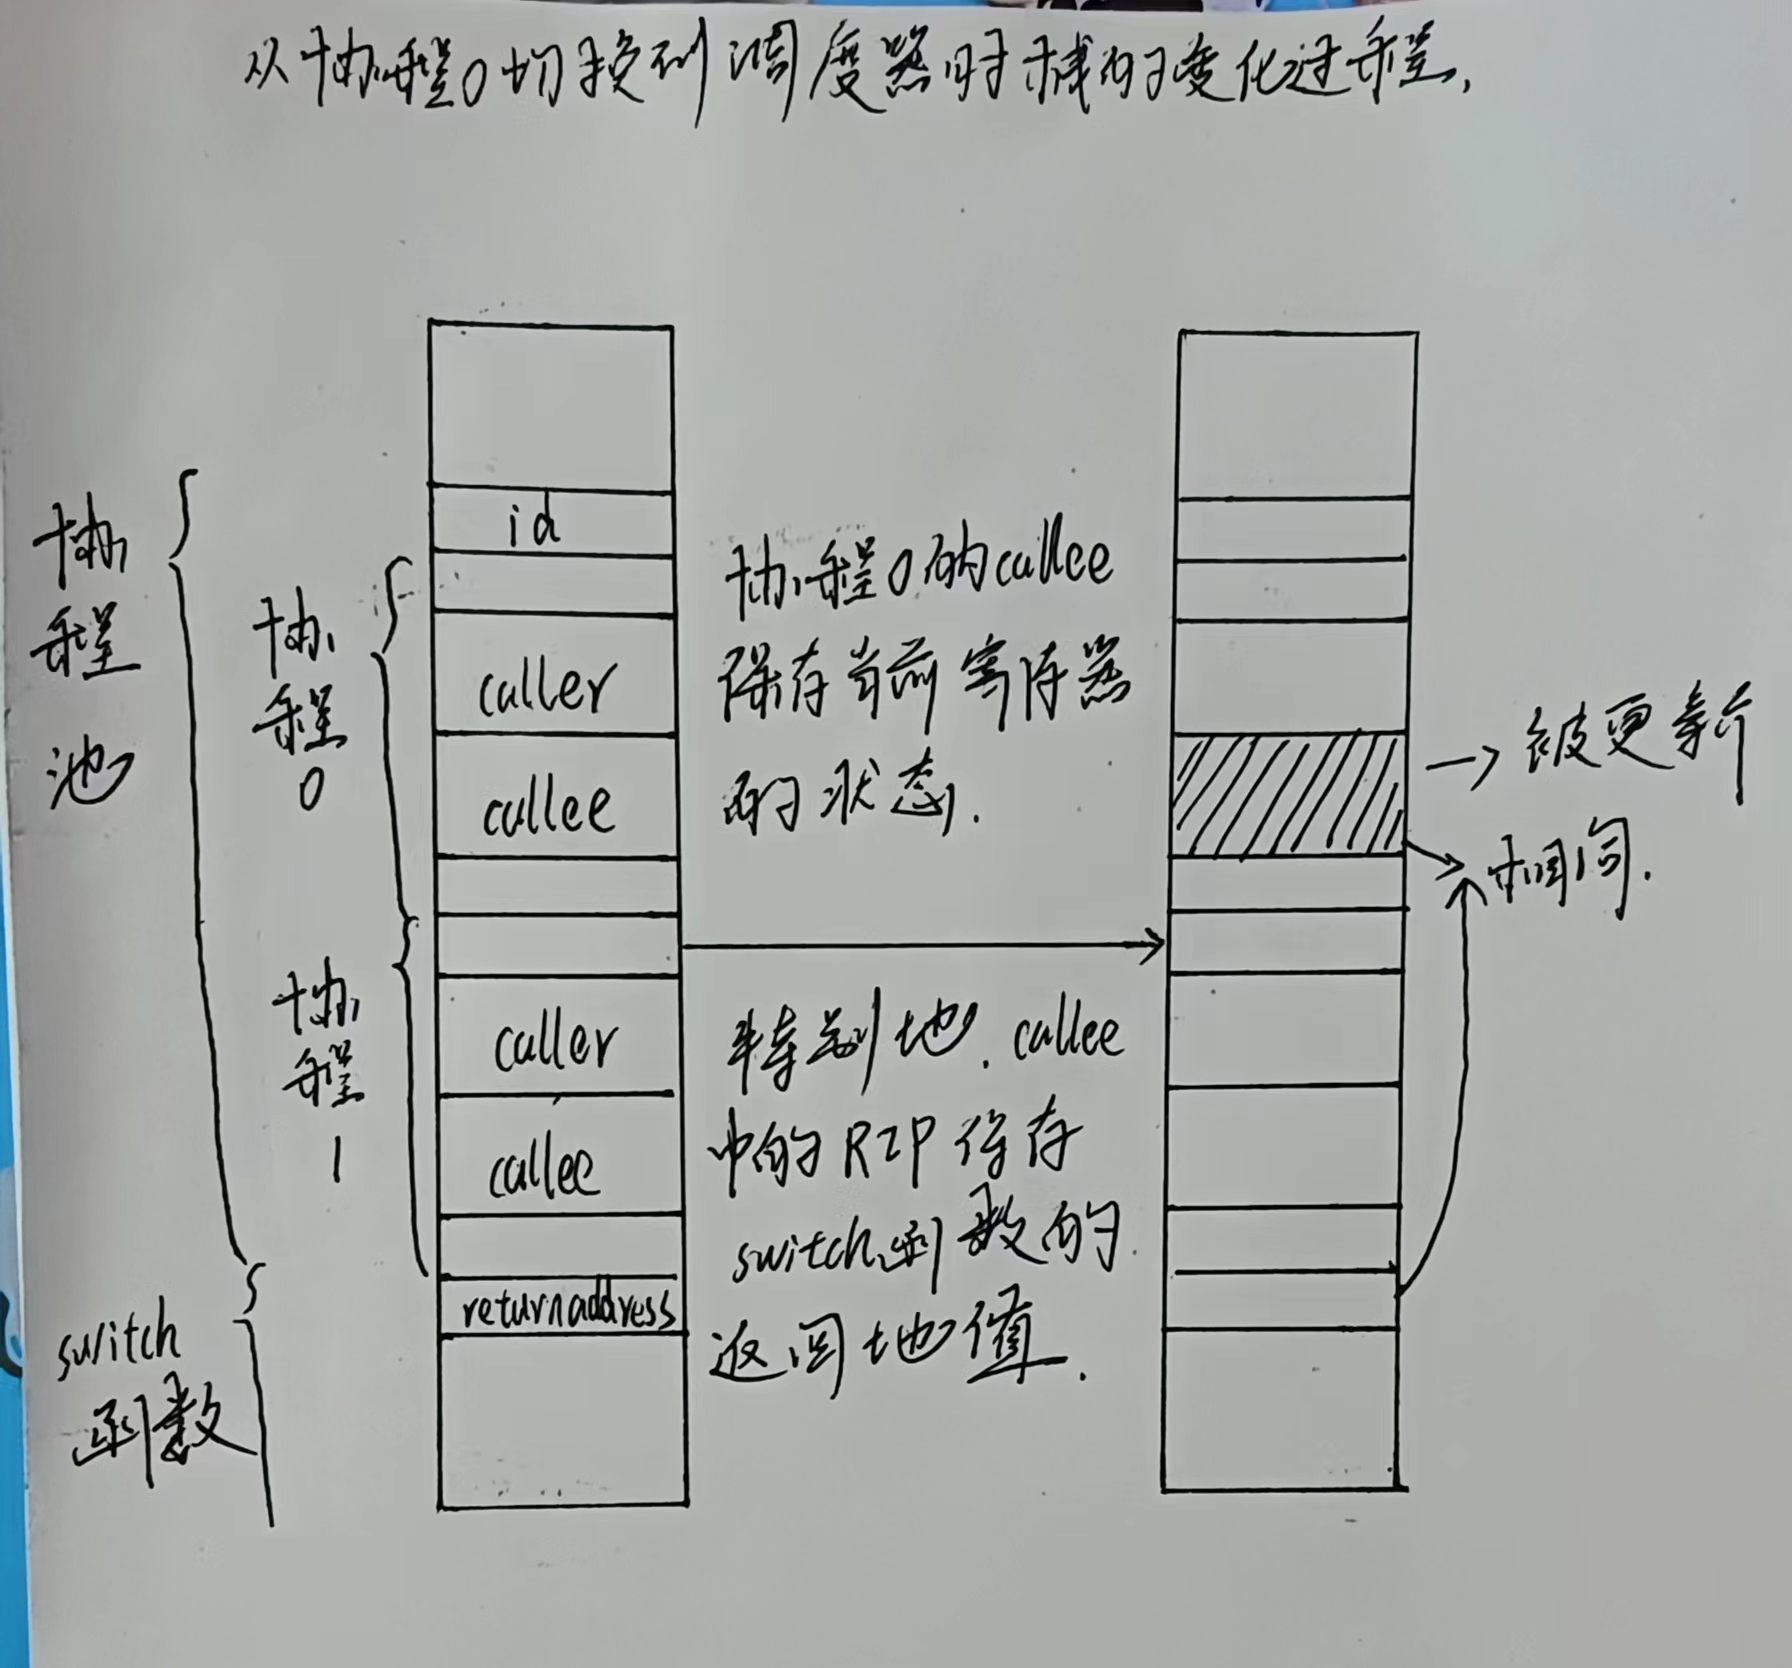 从协程0切换到调度器时栈的变化过程.
协程池
协程0
协程1
switch
函数
id
caller
callee
caller
callee
returnaddress
协程0的callee
保存当前寄存器
的状态.
特别地. callee
中的RIP保存
switch函数的
返回地值.
→被更新
相同.